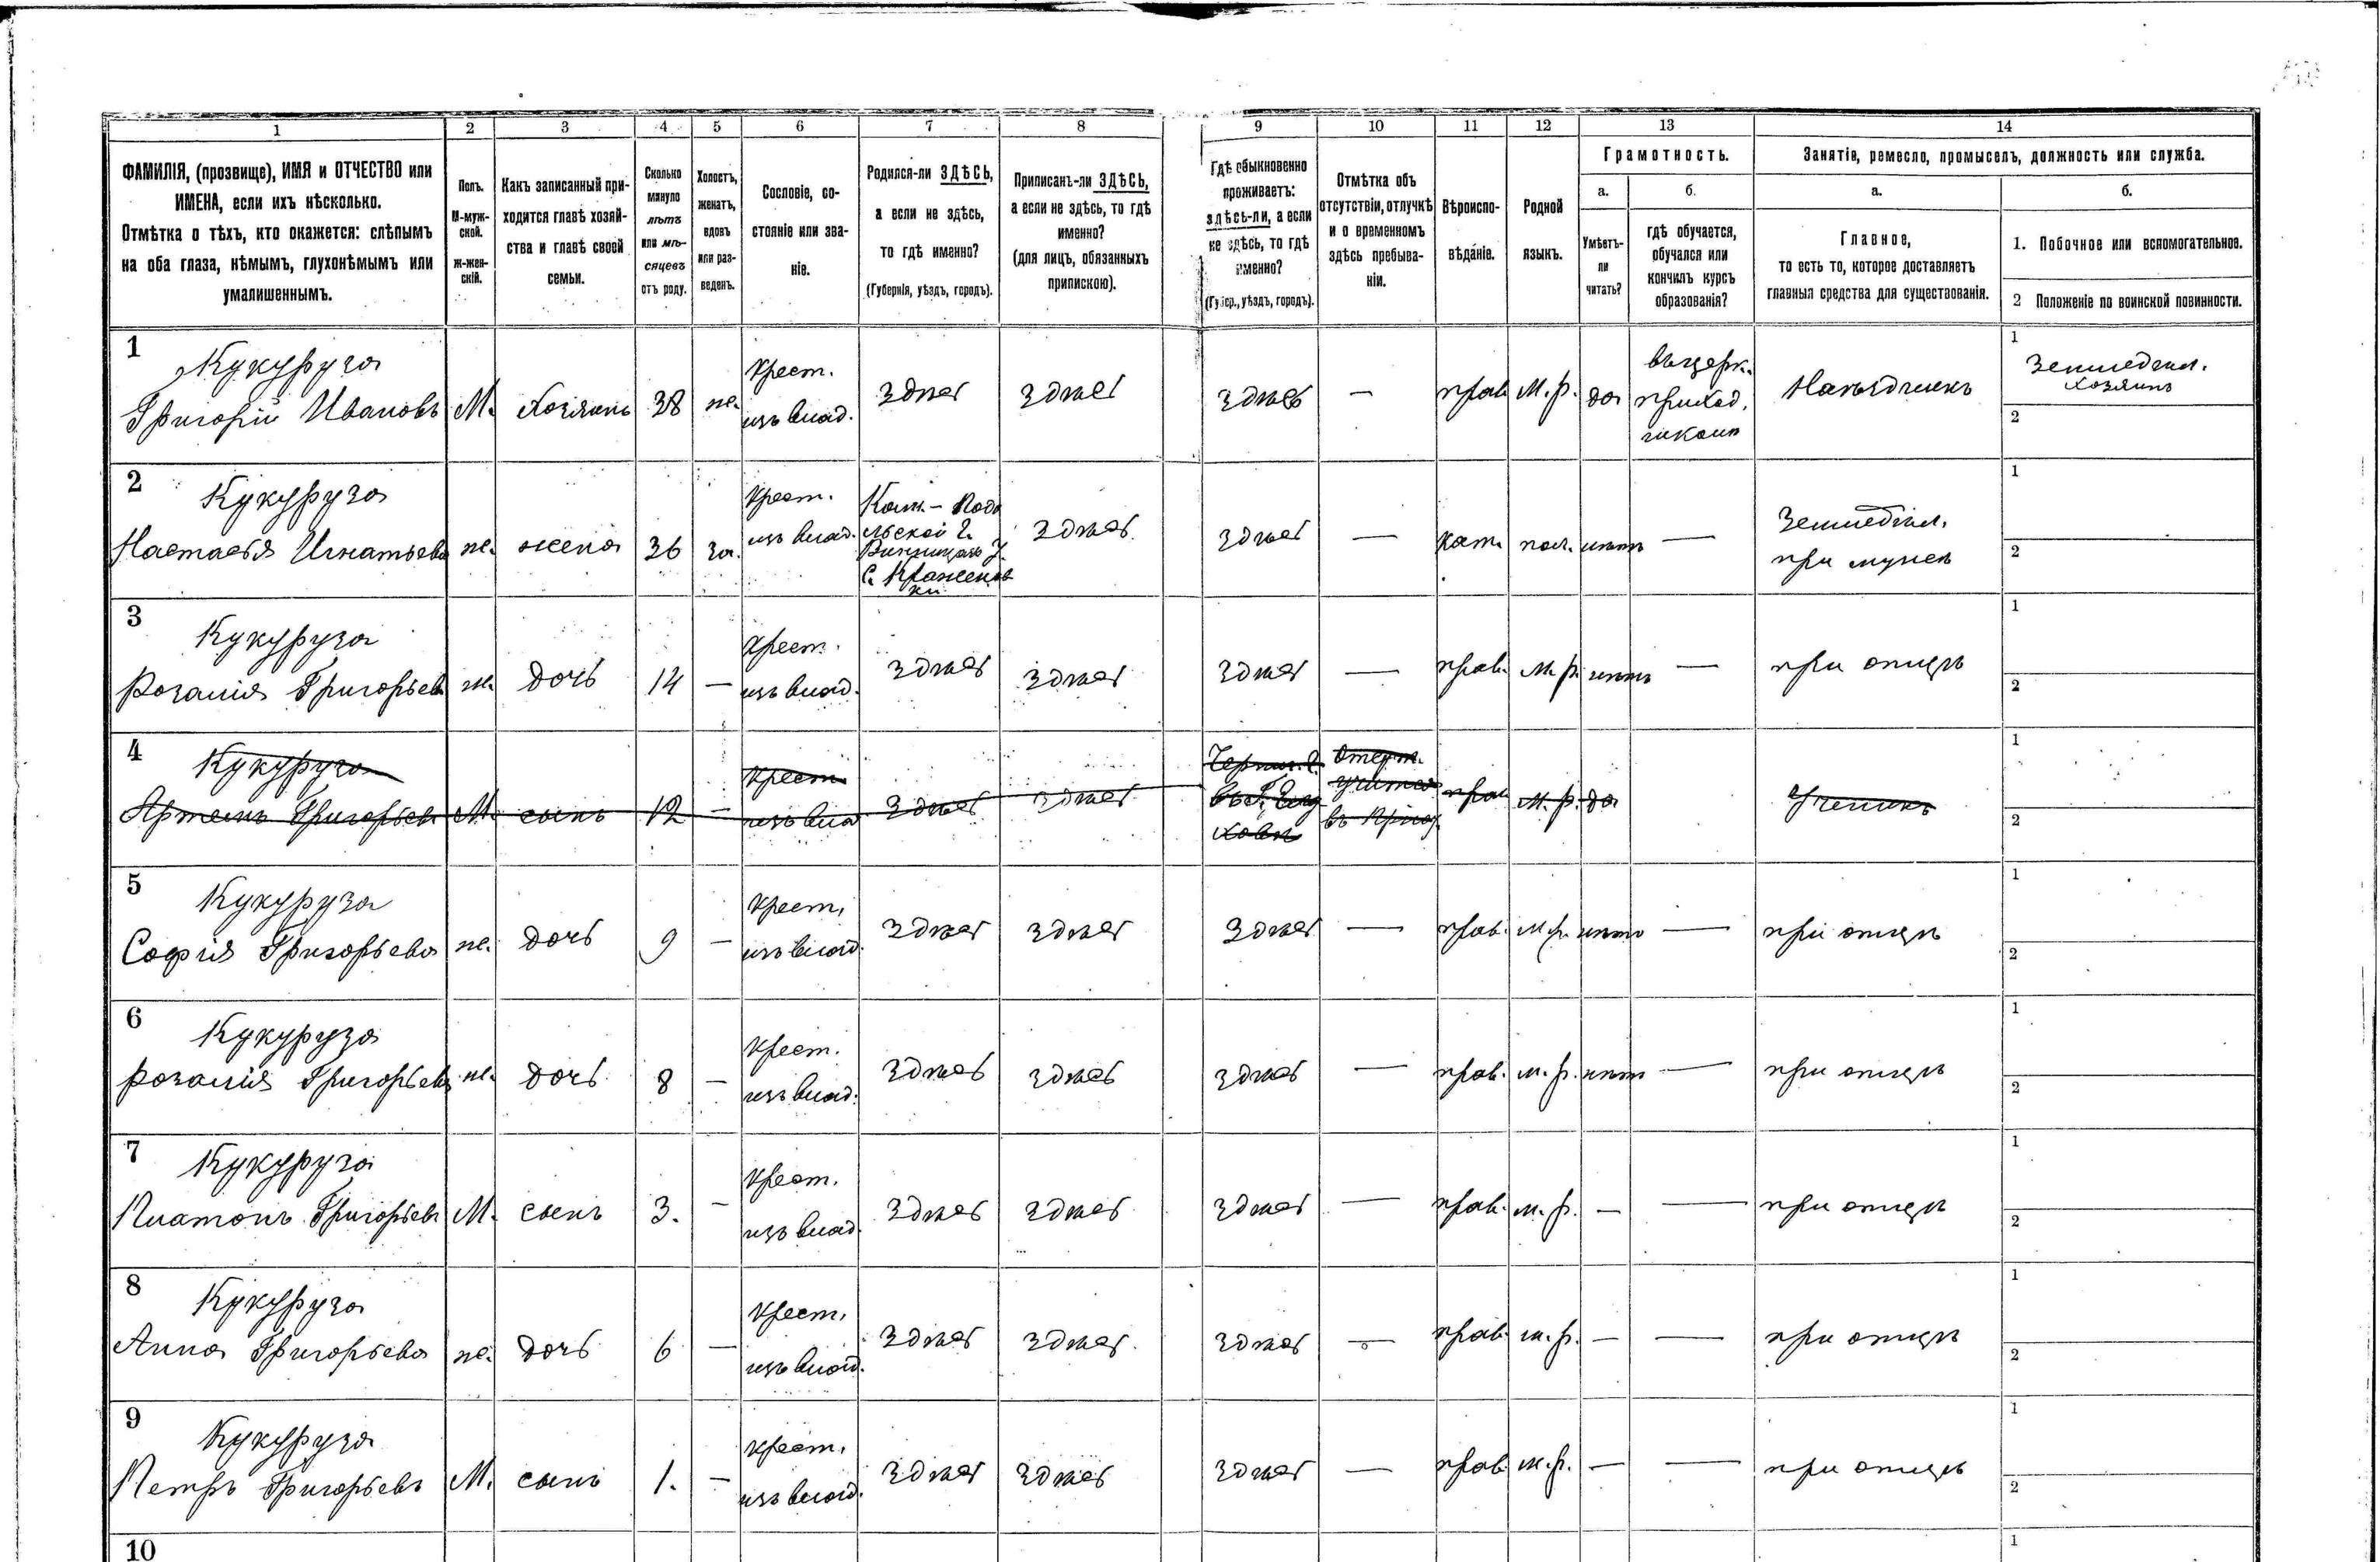 1 2 3 4 5 6 7 8 9 10 11 12 13 14
ФАМИЛІЯ, (прозвище), ИМЯ и ОТЧЕСТВО или
ИМЕНА, если ихъ нѣсколько.
Отмѣтка о тѣхъ, кто окажется: слѣпымъ
на оба глаза, нѣмымъ, глухонѣмымъ или
умалишеннымъ.
Полъ.
М-муж-
ской.
ж-жен-
скій.
Какъ записанный при-
ходится главѣ хозяй-
ства и главѣ своей
семьи.
Сколько
минуло
лѣтъ
или мѣ-
сяцевъ
отъ роду.
Холостъ,
женатъ,
вдовъ
или раз-
веденъ.
Сословіе, со-
стояніе или зва-
ніе.
Родился-ли ЗДѢСЬ,
а если не здѣсь,
то гдѣ именно?
(Губернія, уѣздъ, городъ).
Приписанъ-ли ЗДѢСЬ,
а если не здѣсь, то гдѣ
именно?
(для лицъ, обязанныхъ
припискою).
Гдѣ обыкновенно
проживаетъ:
здѣсь-ли, а если
не здѣсь, то гдѣ
именно?
(Губер., уѣздъ, городъ).
Отмѣтка объ
отсутствіи, отлучкѣ
и о временномъ
здѣсь пребыва-
ніи.
Вѣроиспо-
вѣданіе.
Родной
языкъ.
Грамотность.
а.
Умѣетъ-
ли
читать?
б.
гдѣ обучается,
обучался или
кончилъ курсъ
образованія?
Занятіе, ремесло, промыселъ, должность или служба.
а.
Главное,
то есть то, которое доставляетъ
главныя средства для существованія.
б.
1. Побочное или вспомогательное.
2 Положеніе по воинской повинности.
1
Кукуруза
Григорій Ивановъ
М.
Хозяинъ
38
же.
Крест.
изъ влад.
Здѣсь
Здѣсь
Здѣсь
—
прав
М. р.
да
въ церк.
приход.
1
Земледѣл.
хозяинъ
2
2
Кукуруза
Настасья Игнатьева
же.
жена
36
за.
Крест.
изъ влад.
Кам.-Подо
льской г.
Винницкаго у.
Здѣсь
Здѣсь
—
кат.
пол.
нѣтъ
—
Земледѣл.
при мужѣ
1
2
3
Кукуруза
Розалія Григорьев
же.
дочь
14
—
Крест.
изъ влад.
Здѣсь
Здѣсь
Здѣсь
—
прав.
М. р.
нѣтъ
—
при отцѣ
1
2
4
Кукуруза
Артемъ Григорьев
М.
сынъ
12
—
Крест
изъ влад
Здѣсь
Здѣсь
прав
М. р.
да
Ученикъ
1
2
5
Кукуруза
Софія Григорьева
же.
дочь
9
—
Крест.
изъ влад.
Здѣсь
Здѣсь
Здѣсь
—
прав.
м. р.
нѣтъ
—
при отцѣ
1
2
6
Кукуруза
Розалія Григорьев
же.
дочь
8
—
Крест.
изъ влад.
Здѣсь
Здѣсь
Здѣсь
—
прав.
м. р.
нѣтъ
—
при отцѣ
1
2
7
Кукуруза
Платонъ Григорьев
М.
сынъ
3.
—
Крест.
изъ влад.
Здѣсь
Здѣсь
Здѣсь
—
прав.
м. р.
—
—
при отцѣ
1
2
8
Кукуруза
Анна Григорьева
же.
дочь
6
—
Крест.
изъ влад.
Здѣсь
Здѣсь.
Здѣсь
—
прав.
м. р.
—
—
при отцѣ
1
2
9
Кукуруза
Петръ Григорьевъ
М.
сынъ
1.
—
Крест.
изъ влад.
Здѣсь
Здѣсь
Здѣсь
—
прав.
м. р.
—
—
при отцѣ
1
2
10
1